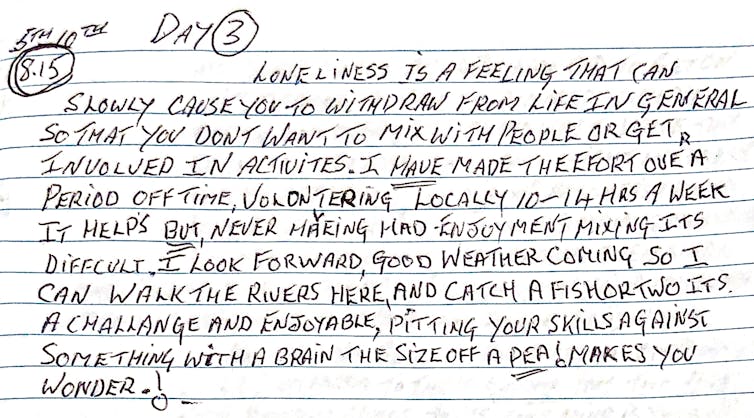 5TH 10TH DAY 3
8.15
LONELINESS IS A FEELING THAT CAN
SLOWLY CAUSE YOU TO WITHDRAW FROM LIFE IN GENERAL
SO THAT YOU DONT WANT TO MIX WITH PEOPLE OR GET
INVOLVED IN ACTIVITES. I HAVE MADE THE EFORT OVER A
PERIOD OFF TIME, VOLONTERING LOCALLY 10-14 HRS A WEEK
IT HELP'S BUT, NEVER HAVEING HAD ENJOYMENT MIXING ITS
DIFFCULT. I LOOK FORWARD, GOOD WEATHER COMING SO I
CAN WALK THE RIVERS HERE, AND CATCH A FISH OR TWO ITS.
A CHALLANGE AND ENJOYABLE, PITTING YOUR SKILLS AGAINST
SOMETHING WITH A BRAIN THE SIZE OFF A PEA! MAKES YOU
WONDER.!